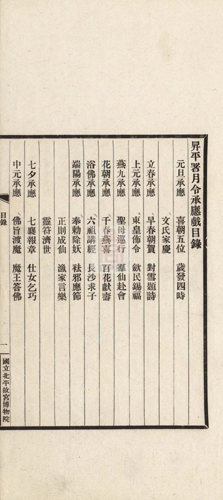 昇平署月令承應戲目錄
元旦承應　喜朝五位　歲發四時
文氏家慶
立春承應　早春朝賀　對雪題詩
上元承應　東皇佈令　斂民錫福
燕九承應　聖母巡行　羣仙赴會
花朝承應　千春燕喜　百花獻壽
浴佛承應　六祖講經　長沙求子
端陽承應　奉勅除妖　祛邪應節
正則成仙　漁家言樂
靈符濟世
七夕承應　七襄報章　仕女乞巧
中元承應　佛旨渡魔　魔王答佛
目錄
一
國立北平故宮博物院